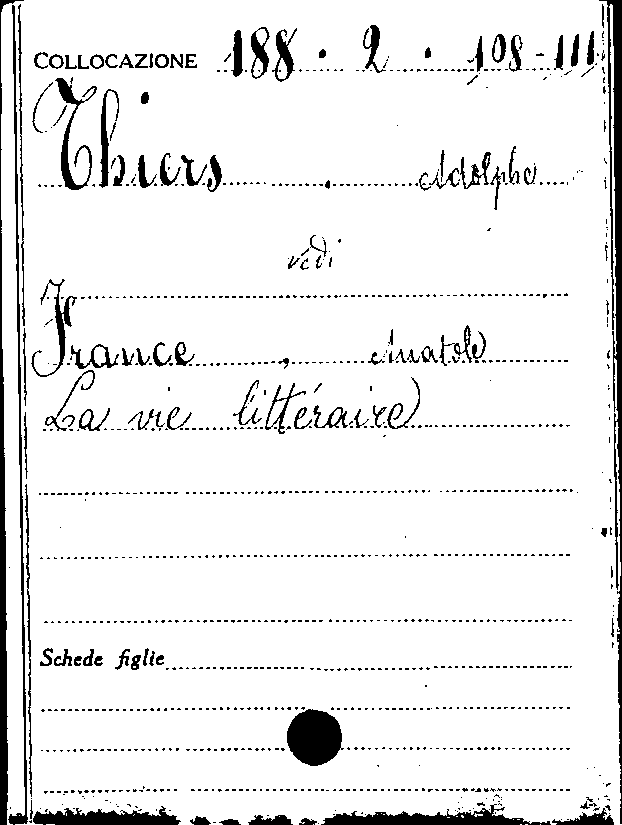 COLLOCAZIONE 188 . 2 . 108-111
Thiers , Adolphe
vedi
France , Anatole
La vie littéraire
Schede figlie